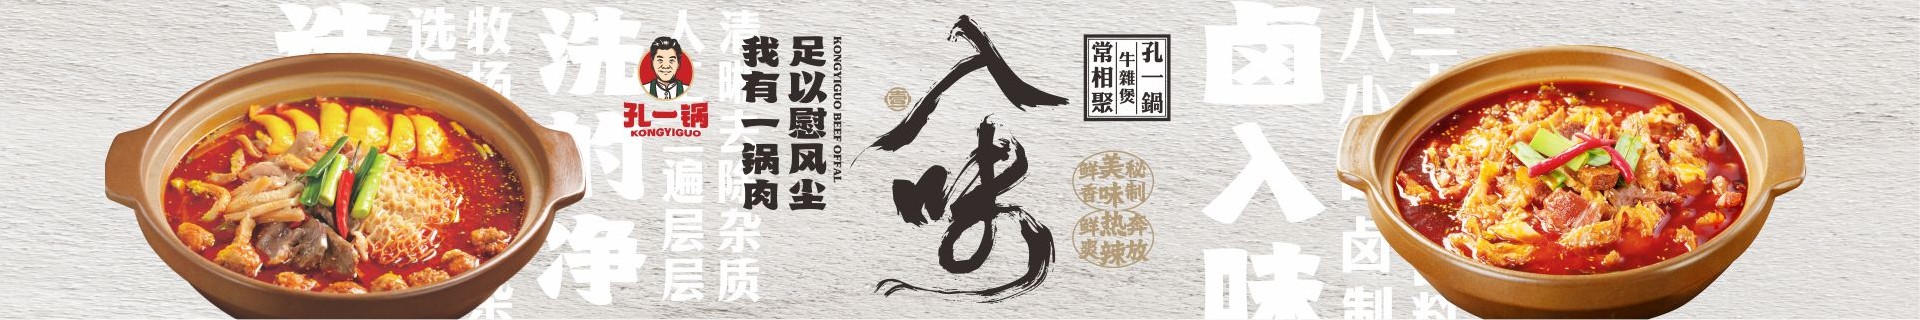 选
牧场
洗的净
人
二遍层层
清
去除杂质
孔一锅
KONGYIGUO
我有一锅肉
足以慰风尘
KONGYIGUO BEEF OFFAL
壹
入味
孔一鍋
牛雜煲
常相聚
秘制
美味
鲜香
奔放
热辣
鲜爽
卤入味
八小
卤制
三
料